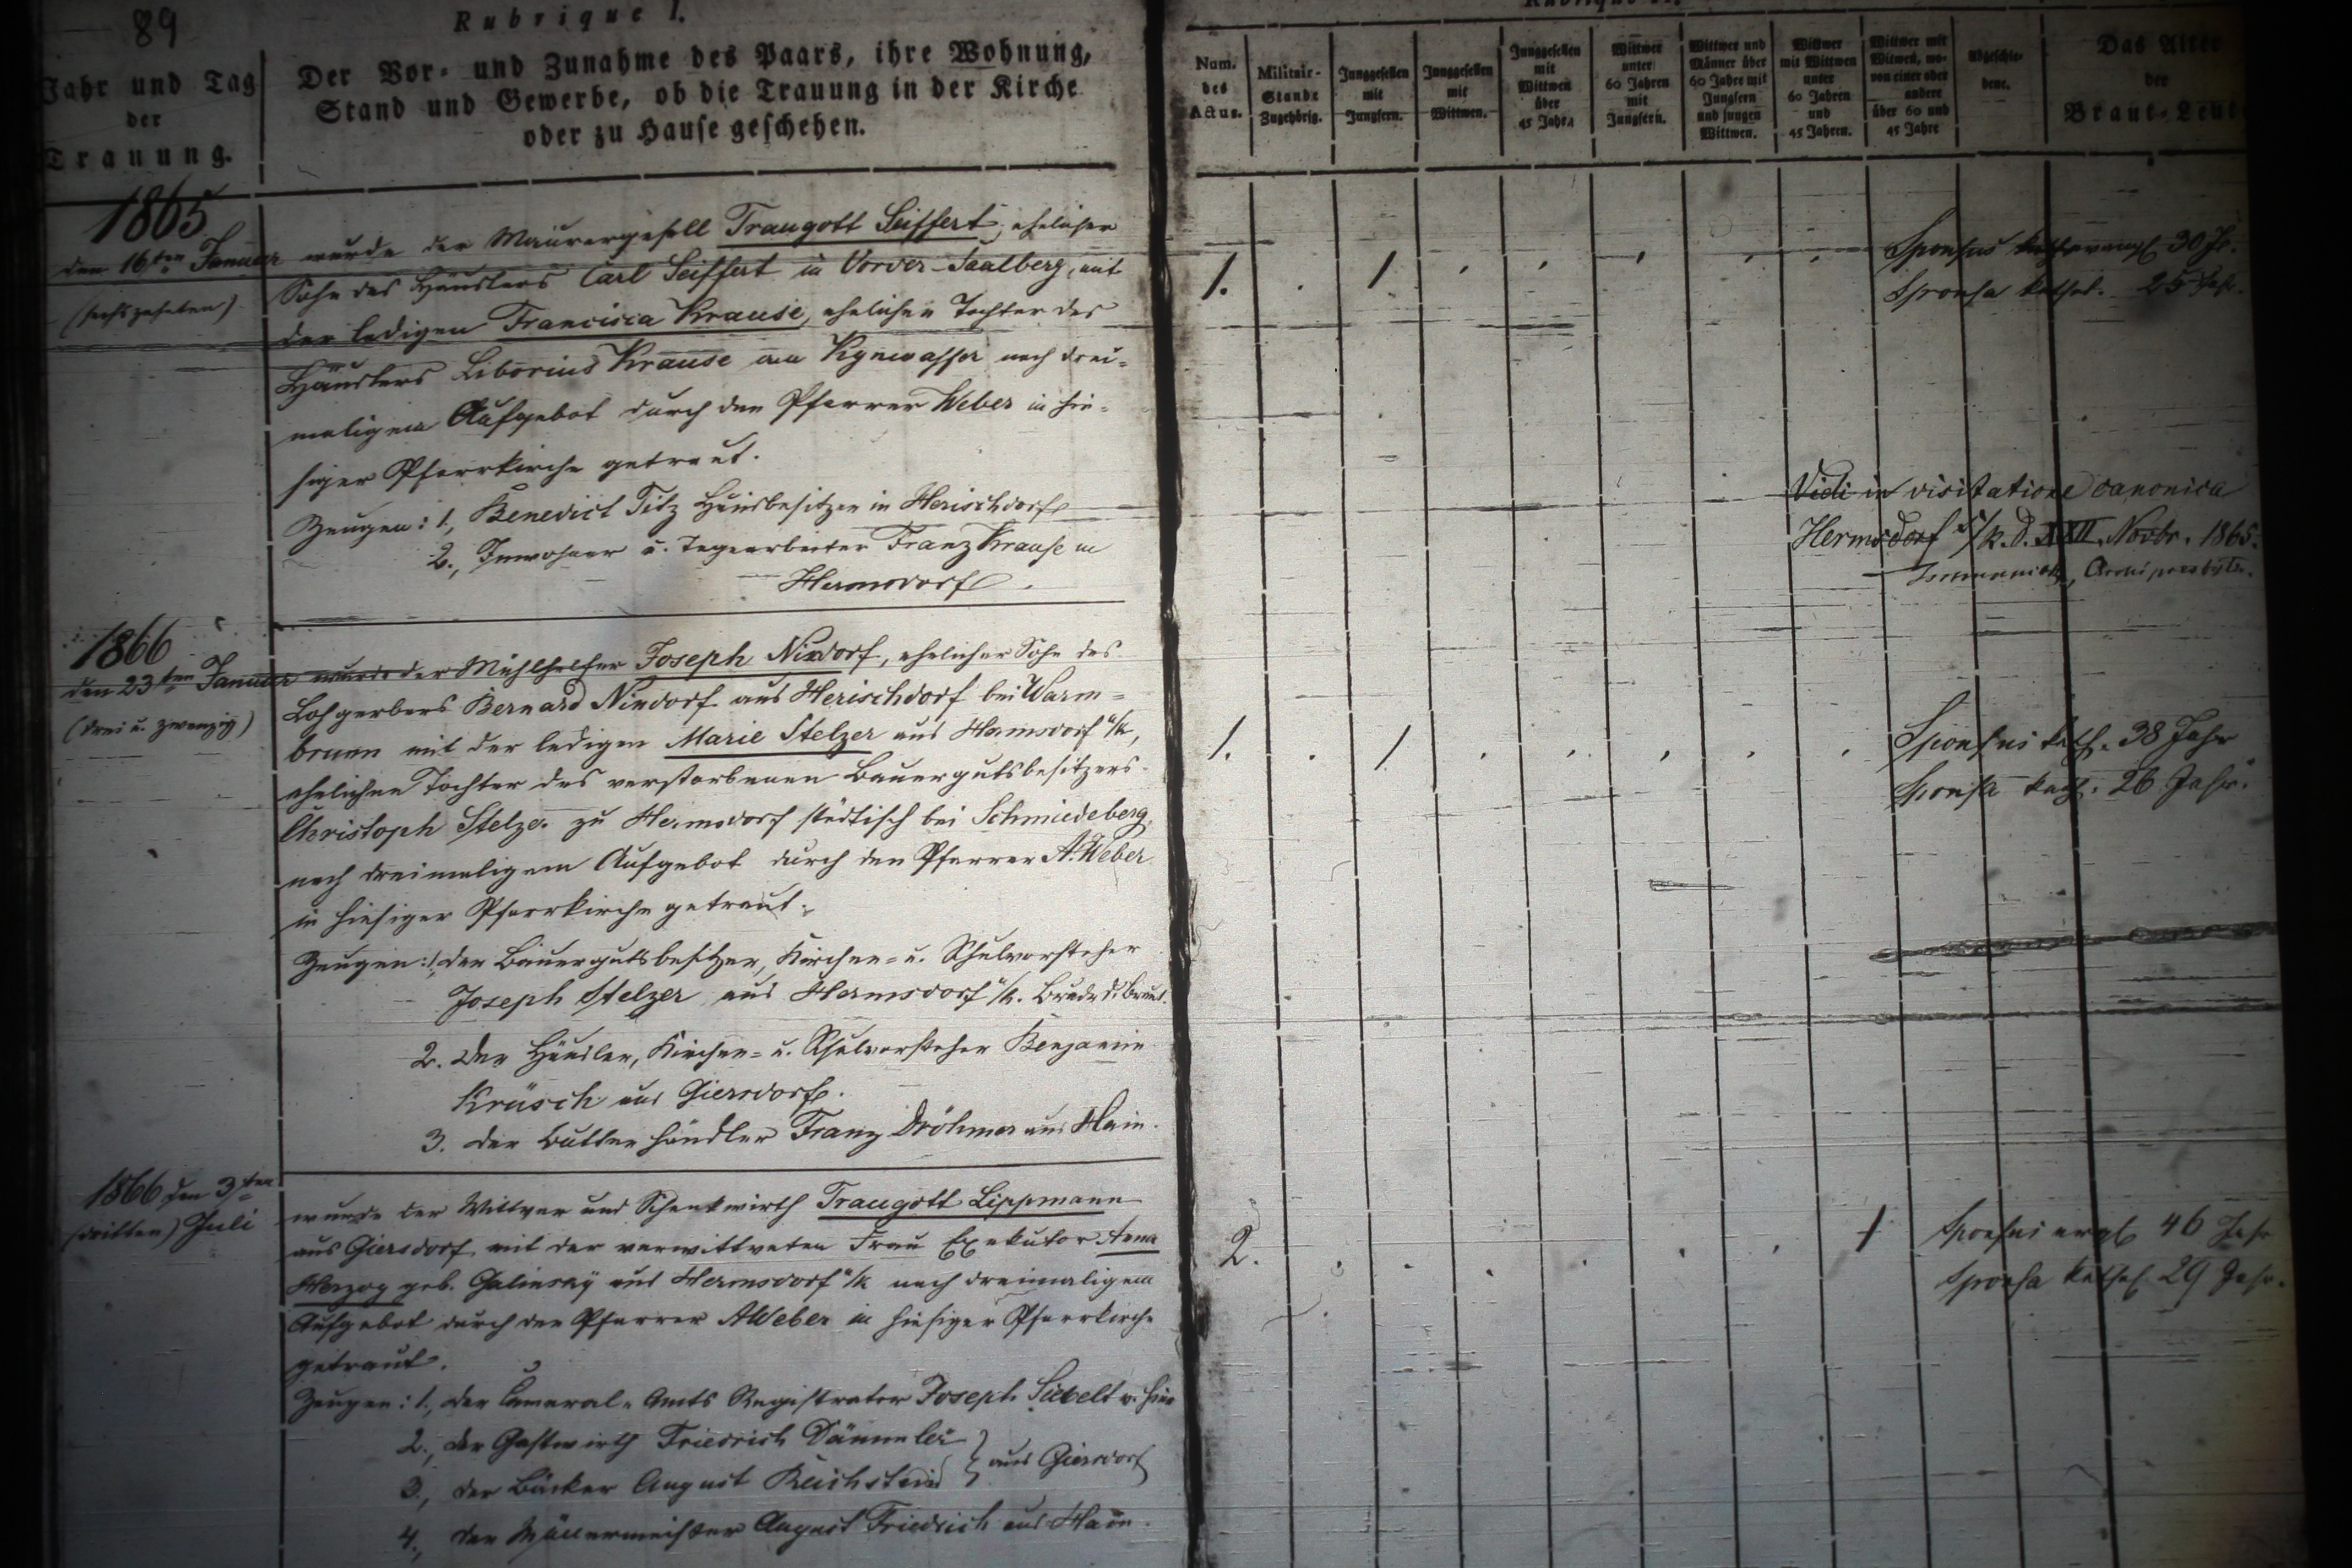 89
Rubrique I.
Jahr und Tag
der
Trauung.
Der Vor- und Zunahme des Paars, ihre Wohnung,
Stand und Gewerbe, ob die Trauung in der Kirche
oder zu Hause geschehen.
Num.
des
Actus.
Militair-
Stande
Zugehörig.
Junggesellen
mit
Jungfern.
Junggesellen
mit
Wittwen.
Junggesellen
mit
Wittwen
über
45 Jahr.
Wittwer
unter
60 Jahren
mit
Jungfern.
Wittwer und
Männer über
60 Jahre mit
Jungfern
und jungen
Wittwen.
Wittwer
mit Wittwen
unter
60 Jahren
und
45 Jahren.
Wittwer mit
Witwen, wo-
von einer oder
andere
über 60 und
45 Jahre
Abgeschie-
dene.
Das Alter
der
Braut-Leut
1865
den 16ten Januar
(sechszehnten)
wurde der Maurergesell Traugott Seiffert, ehelicher
Sohn des Häuslers Carl Seiffert in Vorder-Saalberg, mit
der ledigen Francisca Krause, ehelichen Tochter des
Häuslers Liborius Krause aus Kynwasser nach drei-
maligem Aufgebot durch den Pfarrer Weber in hie-
siger Pfarrkirche getraut.
Zeugen: 1., Benedict Titz Hausbesitzer in Herischdorf
2., Inwohner u. Tagearbeiter Franz Krause in
Hermsdorf.
1. . 1
Sponsus 30 J.
Sponsa kathol. 25 Jahr.
Vidi in visitatione canonica
Hermsdorf u/k. d. XXII. Novbr. 1865.
Archipresbyter.
1866
den 23ten Januar
(drei u. zwanzig)
wurde der Mühlhelfer Joseph Nixdorf, ehelicher Sohn des
Lohgerbers Bernard Nixdorf aus Herischdorf bei Warm-
brunn mit der ledigen Marie Stelzer aus Hermsdorf u/k,
ehelichen Tochter des verstorbenen Bauergutsbesitzers
Christoph Stelzer zu Hermsdorf städtisch bei Schmiedeberg,
nach dreimaligem Aufgebot durch den Pfarrer A. Weber
in hiesiger Pfarrkirche getraut.
Zeugen: 1, der Bauergutsbesitzer, Kirchen- u. Schulvorsteher
Joseph Stelzer aus Hermsdorf u/k. Bruder d. Braut.
2. der Häusler, Kirchen- u. Schulvorsteher Benjamin
Krüsch aus Giersdorf.
3. der Butterhändler Franz Dröhmer aus Hain.
1. . 1
Sponsus kath. 38 Jahr
Sponsa kath. 26 Jahr.
1866 den 3ten
(dritten) Juli
wurde der Wittwer und Schenkwirth Traugott Lippmann
aus Giersdorf mit der verwittweten Frau Exekutor Anna
Herzog geb. Galinsky aus Hermsdorf u/k nach dreimaligem
Aufgebot durch den Pfarrer A Weber in hiesiger Pfarrkirche
getraut.
Zeugen: 1., der Cameral-Amts Registrator Joseph Siebelt v. hier
2., der Gastwirth Friedrich Dämmler
3., der Bäcker August Reichstein } aus Giersdorf
4., der Müllermeister August Friedrich aus Hain.
2. 1
Sponsus evgl 46 Jahr
Sponsa kathol. 29 Jahr.